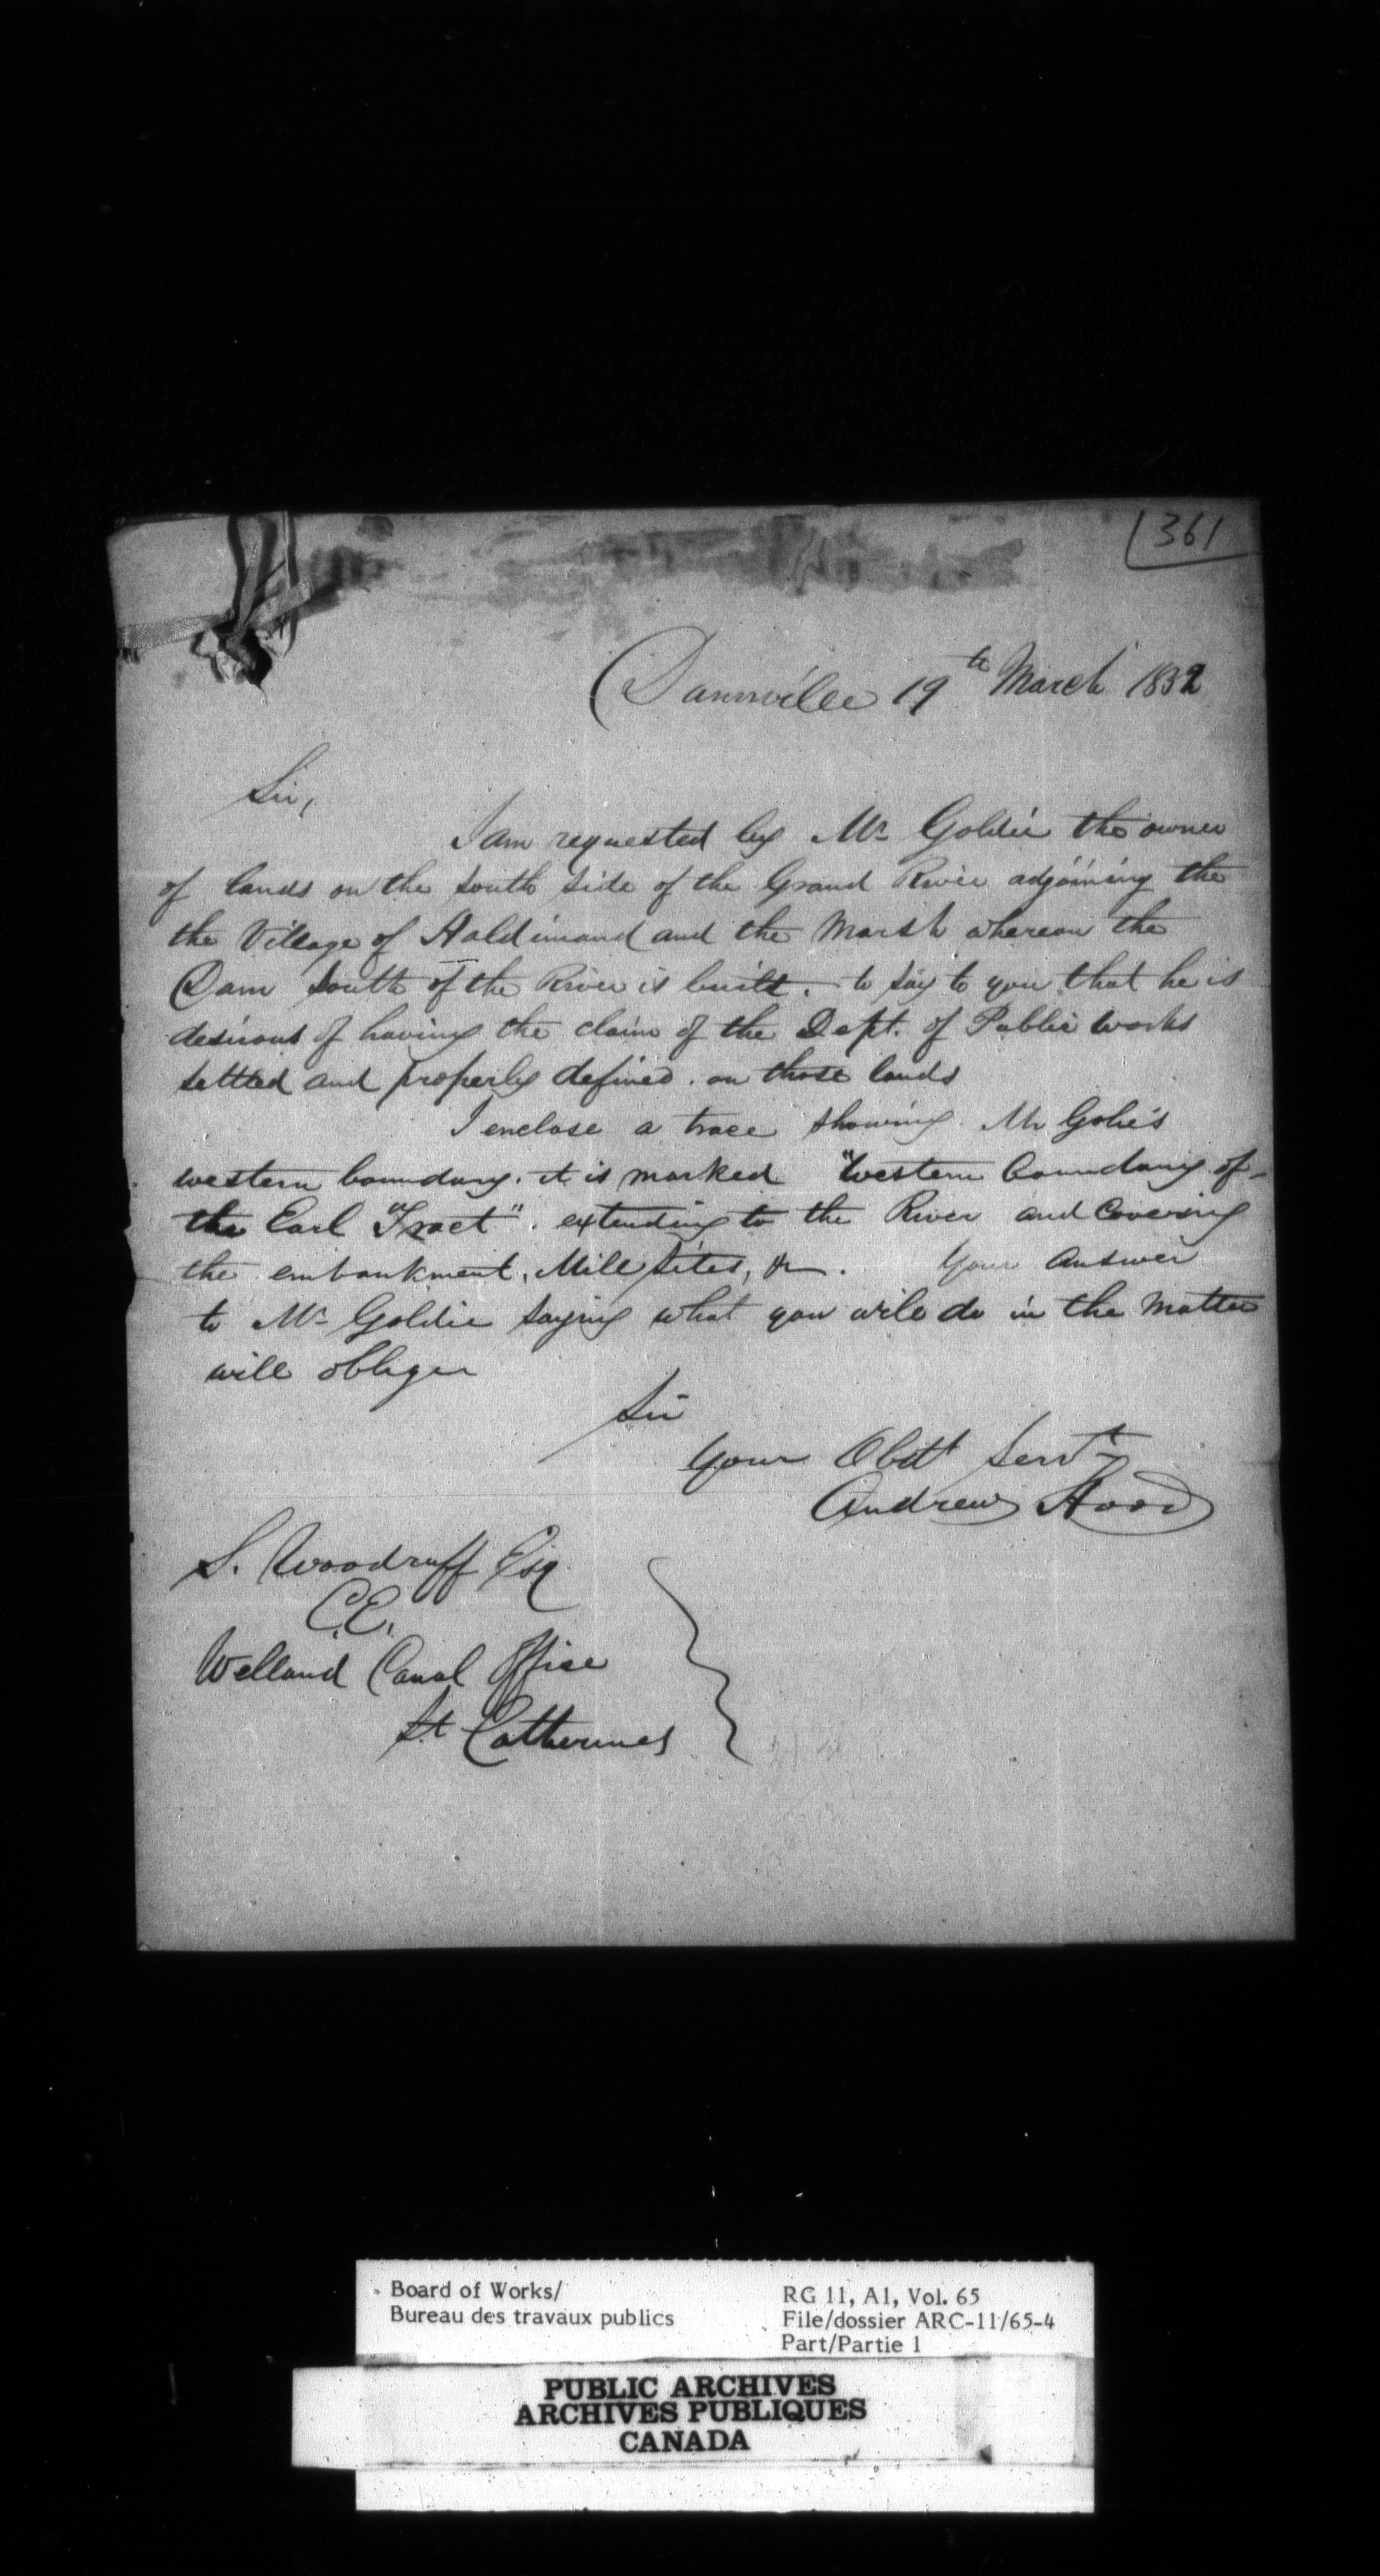 361
Dunnville 19th March 1832
Sir,
I am requested by Mr Goldie the owner
of lands on the south side of the Grand River adjoining the
the Village of Haldimand and the Marsh whereon the
Dam South of the River is built. to say to you that he is
desirous of having the claim of the Dept. of Public Works
settled and properly defined. on those lands
I enclose a trace showing Mr Golie's
western boundary. it is marked "Western boundary of
the Earl "Tract". extending to the River and covering
the embankment, Mill sites, &c. Your answer
to Mr Goldie saying what you will do in the matter
will oblige
Sir
Your Obdt Servt
Andrew Hood
S. Woodruff Esq
C.E.
Welland Canal Office
St Catherines
Board of Works/
Bureau des travaux publics
RG 11, A1, Vol. 65
File/dossier ARC-11/65-4
Part/Partie 1
PUBLIC ARCHIVES
ARCHIVES PUBLIQUES
CANADA